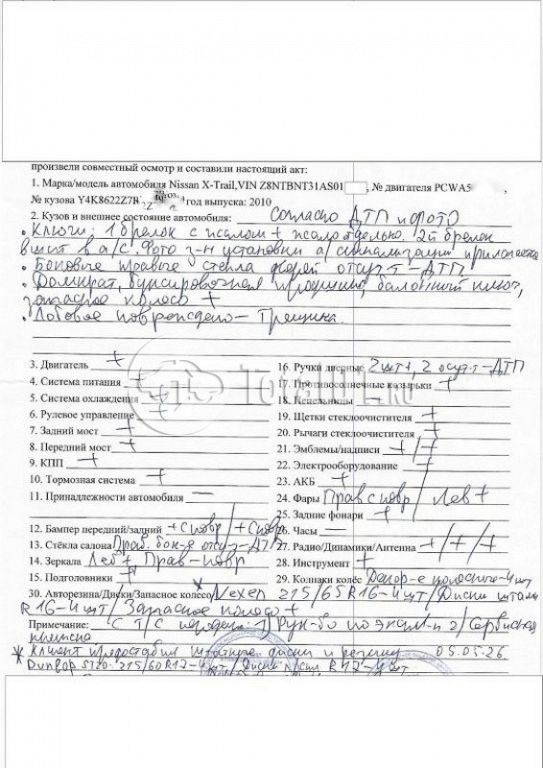 произвели совместный осмотр и составили настоящий акт:
1. Марка/модель автомобиля Nissan X-Trail,VIN Z8NTBNT31AS01 , № двигателя PCWA5 ,
№ кузова Y4K8622Z7R год выпуска: 2010
2. Кузов и внешнее состояние автомобиля: Согласно ДТП и фото
• Ключи: 1 брелок с жалом + жало отдельно. 2й брелок
вшит в а/с. Фото г-н установки а/сигнализации прилагается
• Боковые правые стекла дверей отсут-т - ДТП
• Домкрат, буксировочная проушина, балонный ключ,
запасное колесо +
• Лобовое повреждено - Трещина.
3. Двигатель +
4. Система питания +
5. Система охлаждения +
6. Рулевое управление +
7. Задний мост +
8. Передний мост +
9. КПП +
10. Тормозная система +
11. Принадлежности автомобиля —
12. Бампер передний/задний + С повр / + С повр
13. Стёкла салона Прав. бок-я отсут - ДТП
14. Зеркала Лев + Прав - повр
15. Подголовники +
16. Ручки дверные 2 шт +, 2 отсут-т - ДТП
17. Противосолнечные козырьки +
18. Пепельницы
19. Щетки стеклоочистителя +
20. Рычаги стеклоочистителя +
21. Эмблемы/надписи + / +
22. Электрооборудование +
23. АКБ +
24. Фары Прав с повр / Лев +
25. Задние фонари +
26. Часы —
27. Радио/Динамики/Антенна + / + / +
28. Инструмент +
29. Колпаки колёс Декор-е колесного - 4 шт
30. Авторезина/Диски/Запасное колесо * Nexen 215/65 R16 - 4 шт / Диски штамп
R16 - 4 шт / Запасное колесо +
Примечание: С Т/С передан 1) Рук-во по экспл-и 2) Сервисная
книжка
* Клиент предоставил штатные диски и резину 05.05.26
Dunlop ST20 215/60 R17 - 4 шт / Диски R17 - 4 шт